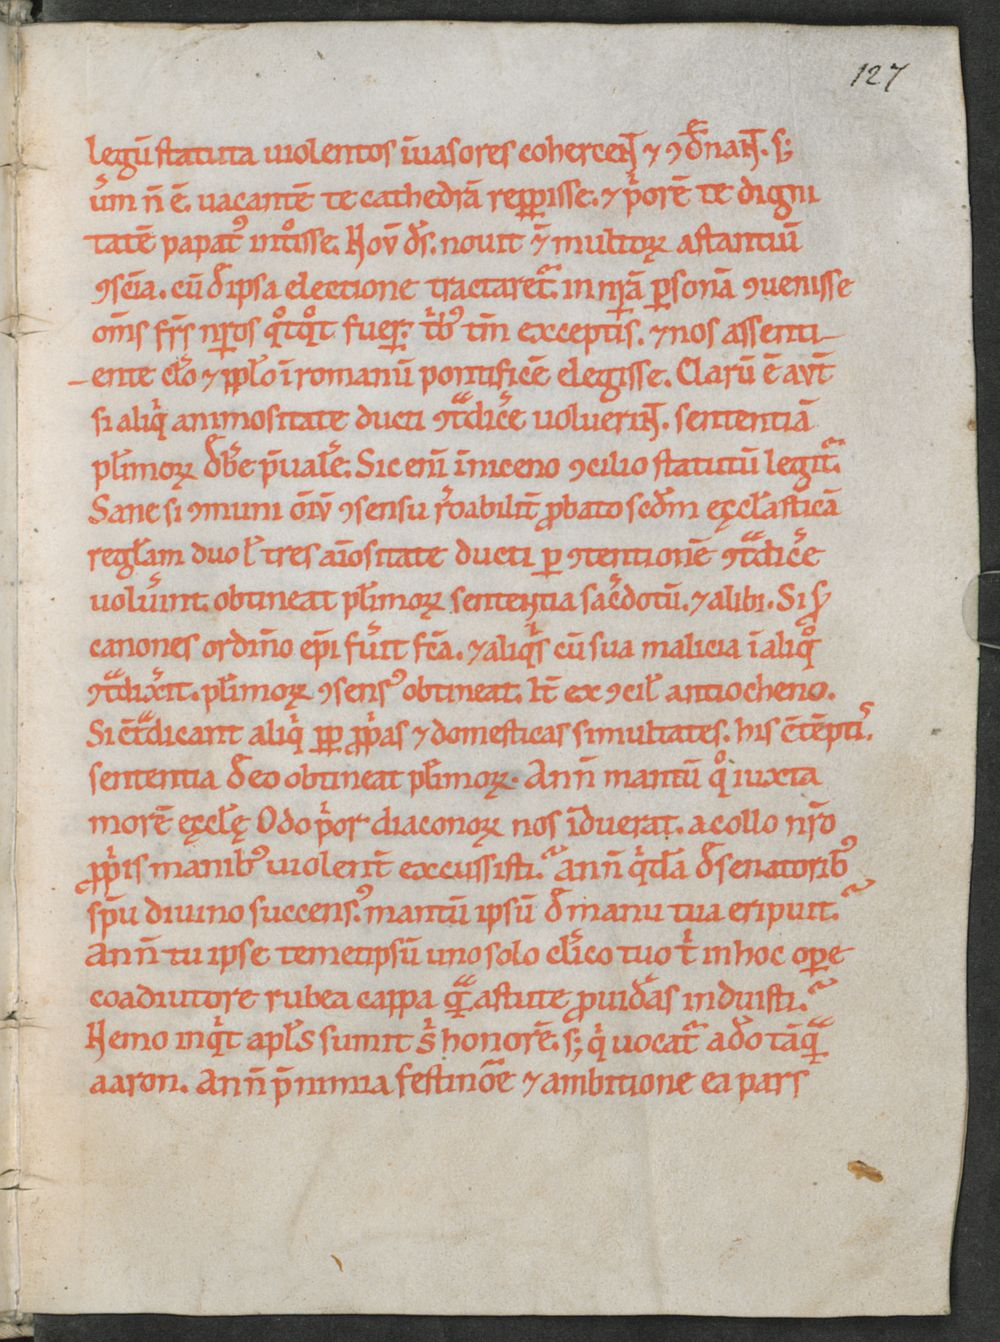 127
legū statuta uiolentos īuasores cohercent ⁊ ꝯdēnant. s;
uͥm n̄ ē. uacantē te cathedrā repꝑisse. ⁊ pͥorē te digni
tatē papatꝰ intͦisse. Nou̅ ds̄. nouit ⁊ multoꝝ astantiū
ꝯscīa. cū d̄ ipsa electione tractaretᷓ. in nr̄ā ꝑsonā ꝯuenisse
om̄s frs̄ nr̄os qͦtqͦt fueꝝ; tͥbꝰ tm̄ exceptis. ⁊ nos assenti-
-ente clo̅ ⁊ pplo̅ ī romanū pontificē elegisse. Clarū ē aut̄
si aliqͥ animositate ducti ꝯᵗᷓdic̄e uoluerint. sententiā
pl̄imoꝝ db̄e p̄ual̄e. Sic eni̅ ī niceno ꝯcilio statutū legitᷓ.
Sane si ꝯmuni ōiu̅ ꝯsensu rōabilit̄ ꝓbato scd̄m ęccl̄asticā
regl̄am duo ł tres aīositate ducti ꝑ ꝯtentionē ꝯᵗᷓdic̄e
uolu̅int. obtineat pl̄imoꝝ sententia sac̄dotū. ⁊ alibi. Si
canones ordin̄o ep̄i fu̅it fc̄a. ⁊ aliqͥs cū sua malicia ī aliqͦ
ꝯᵗᷓdix̄it. pl̄imoꝝ ꝯsensꝰ obtineat. It̄ ex ꝯcil̄ antiocheno.
Si c̄ᵗᷓdicant aliqͥ ꝓp ꝓpͥas ⁊ domesticas simultates. his c̄tēptis.
sententia d̄ eo obtineat pl̄imoꝝ. Ann̄ mantū qͦ iuxta
morē ęccl̄ę Odo pͥor diaconoꝝ nos īduerat. a collo nr̄o
ꝓpͥis manibꝰ uiolent̄ excussisti. ann̄ qͥdā d̄ senatoribꝰ
sp̄u diuino succensꝰ. mantū ipsū d̄ manu tua eripuit.
Ann̄ tu ipse temetipsū uno solo cl̄ico tuo tͥ in hoc oꝑe
coadiutore rubea cappa qͣ̄ astute ꝓuid̄as induisti.
Nemo inqͥt apl̄s sumit sͥ honorē. s; qͥ uocatᷓ a do̅ tāqͣ̄
aaron. Ann̄ p̄ nimia festinōe ⁊ ambitione ea pars